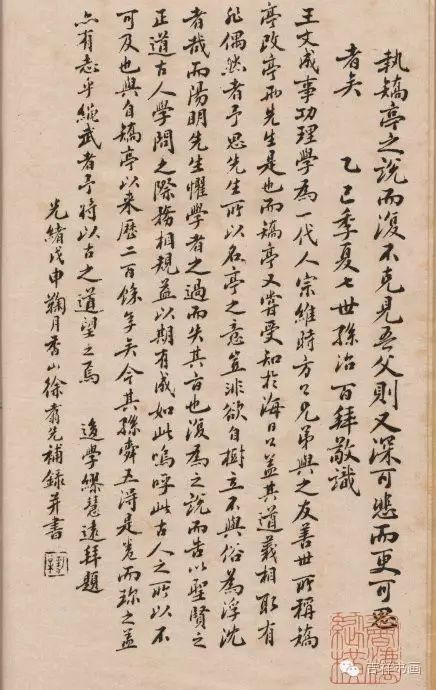 執矯亭之說而復不克見吾父則又深可悲而更可思
者矣　乙巳季夏七世孫治百拜敬識
王文成事功理學爲一代人宗維時方公兄弟與之友善世所稱矯
亭改亭兩先生是也而矯亭又嘗受知於海日公蓋其道義相取有
非偶然者予思先生所以名亭之意豈非欲自樹立不與俗爲浮沈
者哉而陽明先生懼學者之過而失其旨也復爲之說而告以聖賢之
正道古人學問之際務相規益以期有成如此嗚呼此古人之所以不
可及也與自矯亭以來歷二百餘年矣今其孫舜五得是卷而珍之蓋
亦有志乎繩武者予將以古之道望之焉　後學繆慧遠拜題
光緒戊申鞠月香山徐翕先補錄并書